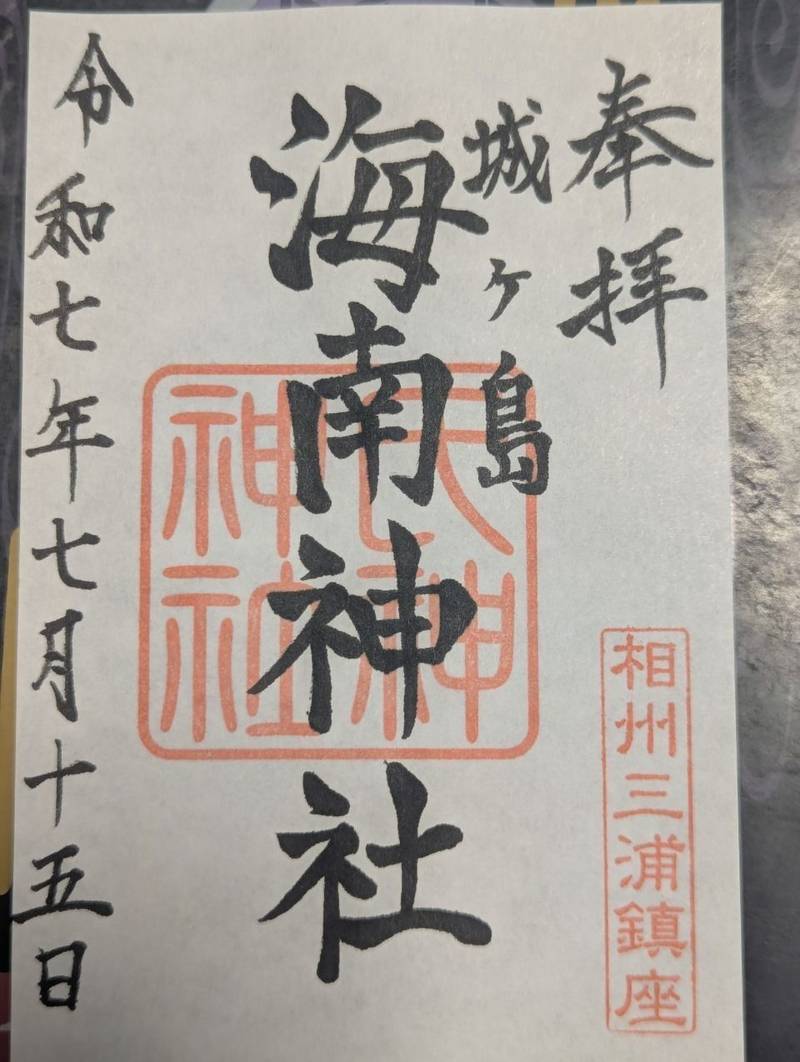 奉拝
相州三浦鎮座
城ヶ島
海南神社
神
神社
令和七年七月十五日